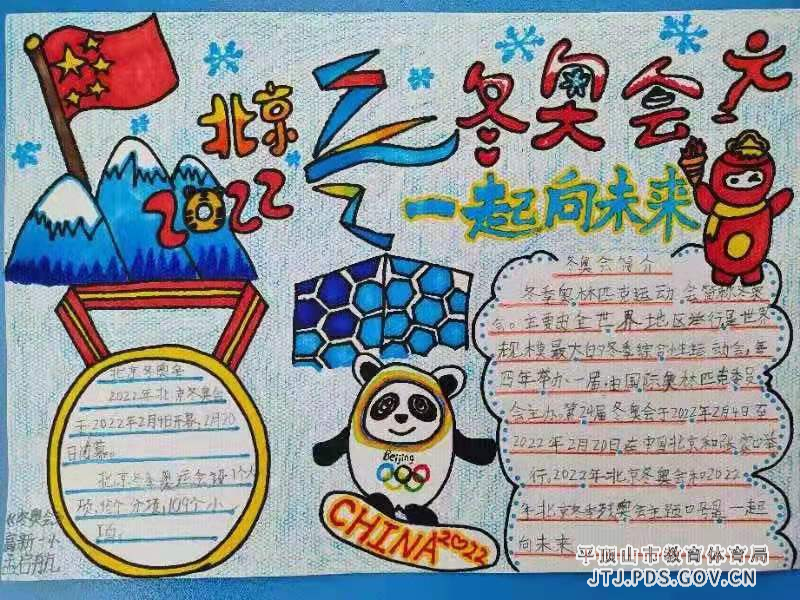 北京
2022
冬奥会
一起向未来
冬奥会简介
冬季奥林匹克运动会简称冬奥
会。主要由全世界地区举行是世界
规模最大的冬季综合性运动会，每
四年举办一届，由国际奥林匹克委员
会主办。第24届冬奥会于2022年2月4日至
2022年2月20日在中国北京和张家口举
行，2022年北京冬奥会和2022
年北京冬季残奥会主题口号是一起
向未来
北京冬奥会
2022年北京冬奥会
于2022年2月4日开幕，2月20
日闭幕。
北京冬季奥运会设7个大
项，15个分项，109个小
项。
Beijing
CHINA 2022
《冬奥会》
高新一小
平顶山市教育体育局
JTJ.PDS.GOV.CN